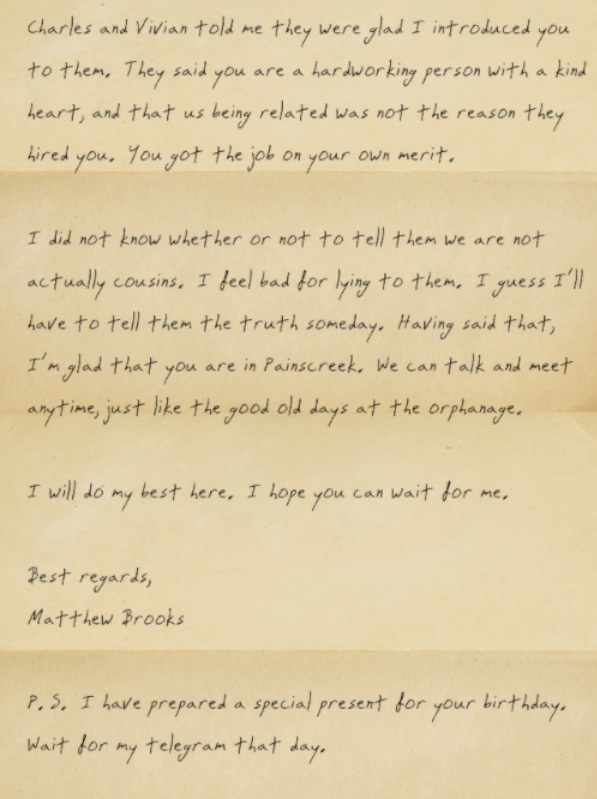 Charles and Vivian told me they were glad I introduced you
to them. They said you are a hardworking person with a kind
heart, and that us being related was not the reason they
hired you. You got the job on your own merit.
I did not know whether or not to tell them we are not
actually cousins. I feel bad for lying to them. I guess I'll
have to tell them the truth someday. Having said that,
I'm glad that you are in Painscreek. We can talk and meet
anytime, just like the good old days at the orphanage.
I will do my best here. I hope you can wait for me.
Best regards,
Matthew Brooks
P.S. I have prepared a special present for your birthday.
Wait for my telegram that day.